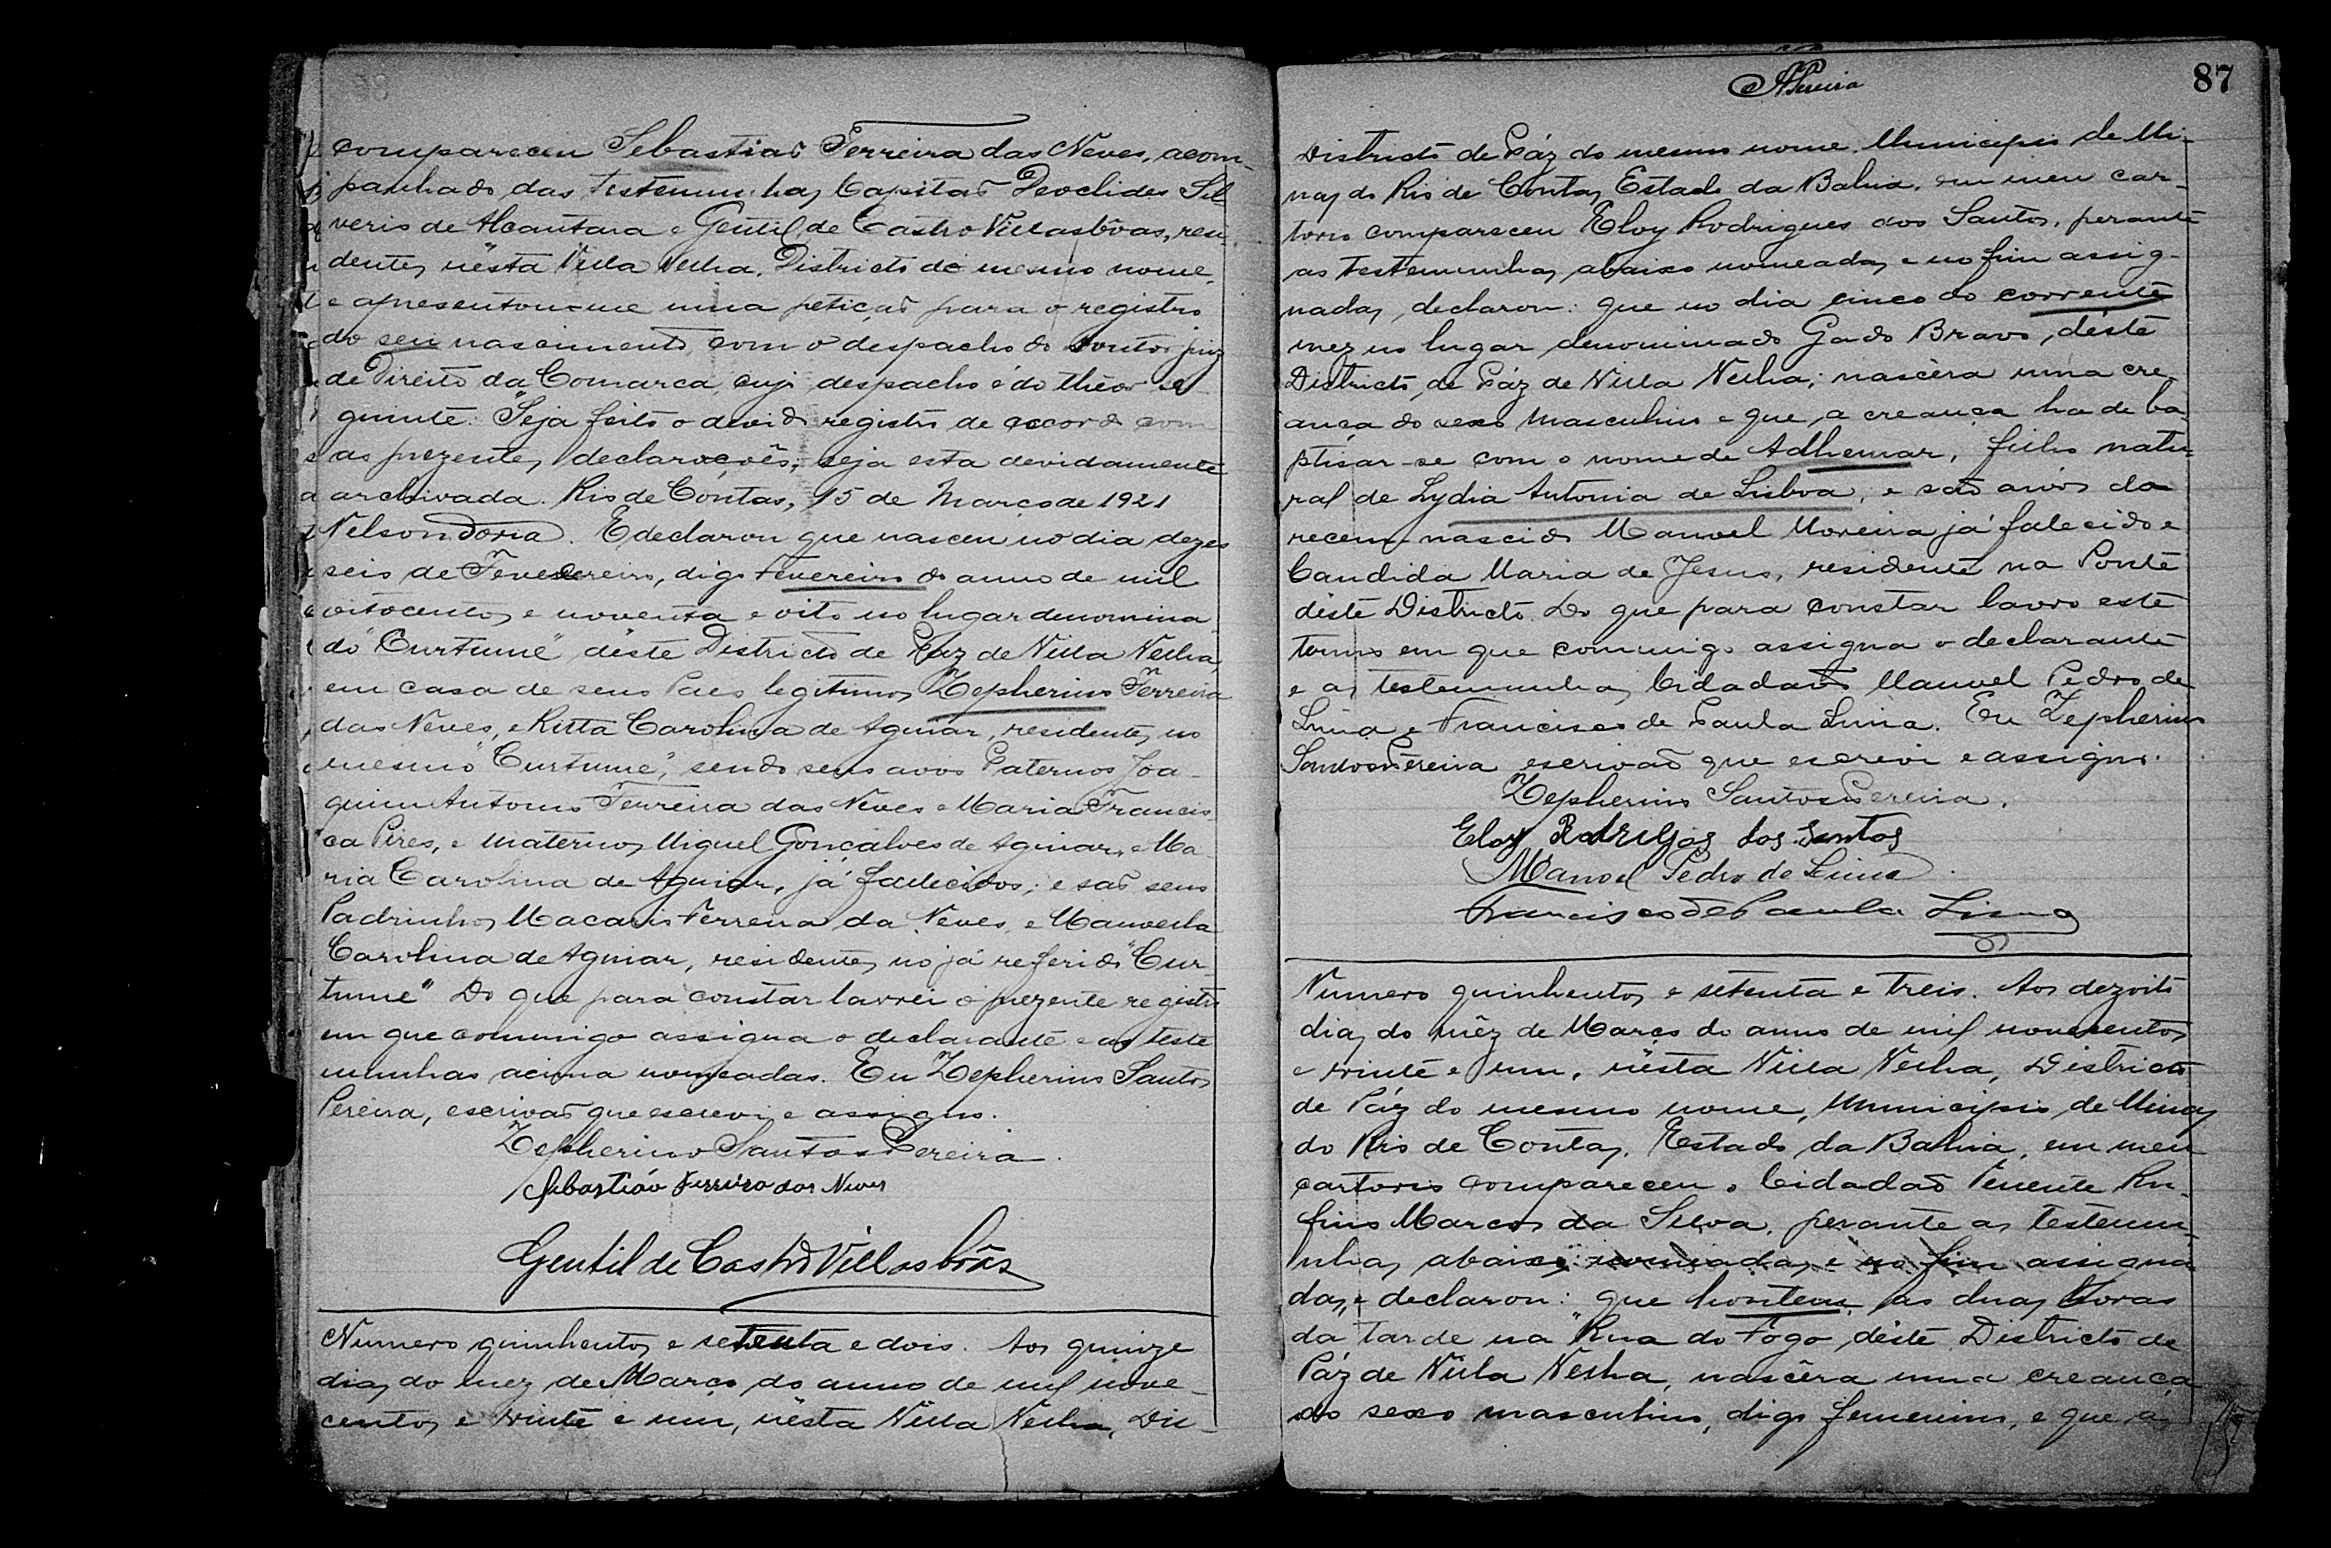 compareceu Sebastião Ferreira das Neves, acom-
panhado das testemunhas Capitão Deoclides Sil
verio de Alcantara e Gentil de Castro Villasbôas, resi-
dentes nésta Villa Velha, Districto do mesmo nome,
e apresentou-me uma petição para o registro
do seu nascimento, com o despacho do Doutor juiz
de Direito da Comarca, cujo despacho é do théor se-
guinte: "Seja feito o devido registro de accordo com
as prezentes declarações, seja esta devidamente
archivada. Rio de Contas, 15 de Março de 1921
Nelson Doria. E declarou que nasceu no dia dezes
seis de Fevedereiro, digo Fevereiro do anno de mil
oitocentos e noventa e oito no lugar denomina
do "Curtume" déste Districto de Paz de Villa Velha
em casa de seus Paes legitimos Zepherino Ferreira
das Neves, e Ritta Carolina de Aguiar, residentes no
mesmo "Curtume", sendo seus avós Paternos Joa-
quim Antonio Ferreira das Neves e Maria Francis-
ca Pires, e maternos Miguel Gonçalves de Aguiar, e Ma-
ria Carolina de Aguiar, já fallecidos; e são seus
Padrinhos Macario Ferreira da Neves, e Manoella
Carolina de Aguiar, residentes no já referido "Cur-
tume" Do que para constar lavrei o prezente registro
em que commigo assigna o declarante e as teste
munhas acima nomeadas. Eu Zepherino Santos
Pereira, escrivão que escrevi e assigno.
Zepherino Santos Pereira.
Sebastião Ferreira das Neves
Gentil de Castro Villasbôas
Numero quinhentos e setenta e dois. Aos quinze
dias do mez de Março do anno de mil nove-
centos e vinte e um, nésta Villa Velha, Dis-
APereira
87
Districto de Páz do mesmo nome. Municipio de Mi-
nas do Rio de Contas, Estado da Bahia, em meu car-
torio compareceu Eloy Rodrigues dos Santos, perante
as testemunhas abaixo nomeadas e no fim assig-
nadas, declarou: que no dia cinco do corrente
mez no lugar denominado Gado Bravo, déste
Districto de Páz de Villa Velha; nascêra uma cre
ança do sexo masculino e que a creança ha de ba
ptisar-se com o nome de Adhemar, filho natu-
ral de Lydia Antonia de Lisbôa, e são avós do
recem-nascido Manoel Moreira já falecido e
Candida Maria de Jesus, residente na Ponte
déste Districto. Do que para constar lavro este
termo em que commigo assigna o declarante
e as testemunhas Cidadãos Manoel Pedro de
Lima e Francisco de Paula Lima. Eu Zepherino
Santos Pereira escrivão que escrevi e assigno.
Zepherino Santos Pereira.
Eloy Rodrigos dos Santos
Manoel Pedro de Lima
Francisco de Paula Lima
Numero quinhentos e setenta e treis. Aos dezoito
dias do mêz de Março do anno de mil novecentos
e vinte e um, nésta Villa Velha, Districto
de Páz do mesmo nome, Municipio de Minas
do Rio de Contas, Estado da Bahia, em meu
cartorio compareceu o Cidadão Tenente Ru-
fino Marcos da Silva, perante as testemu-
nhas abaixo nomeadas e no fim assigna
das, e declarou: que hontem, as duas horas
da tarde na "Rua do Fogo, déste Districto de
Páz de Villa Velha, nascêra uma creança
do sexo masculino, digo femenino, e que a